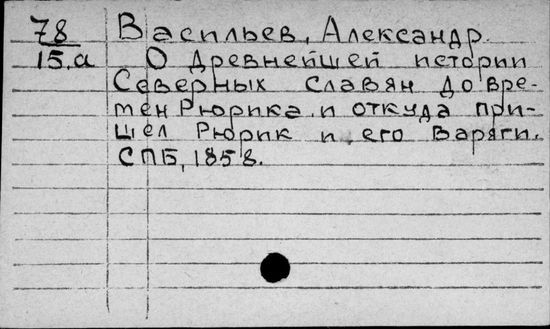 78 Васильев, Александр.
15.а О древнейшей истории
Северных славян до вре-
мен Рюрика и откуда при-
шел Рюрик и его Варяги.
СПБ, 1858.